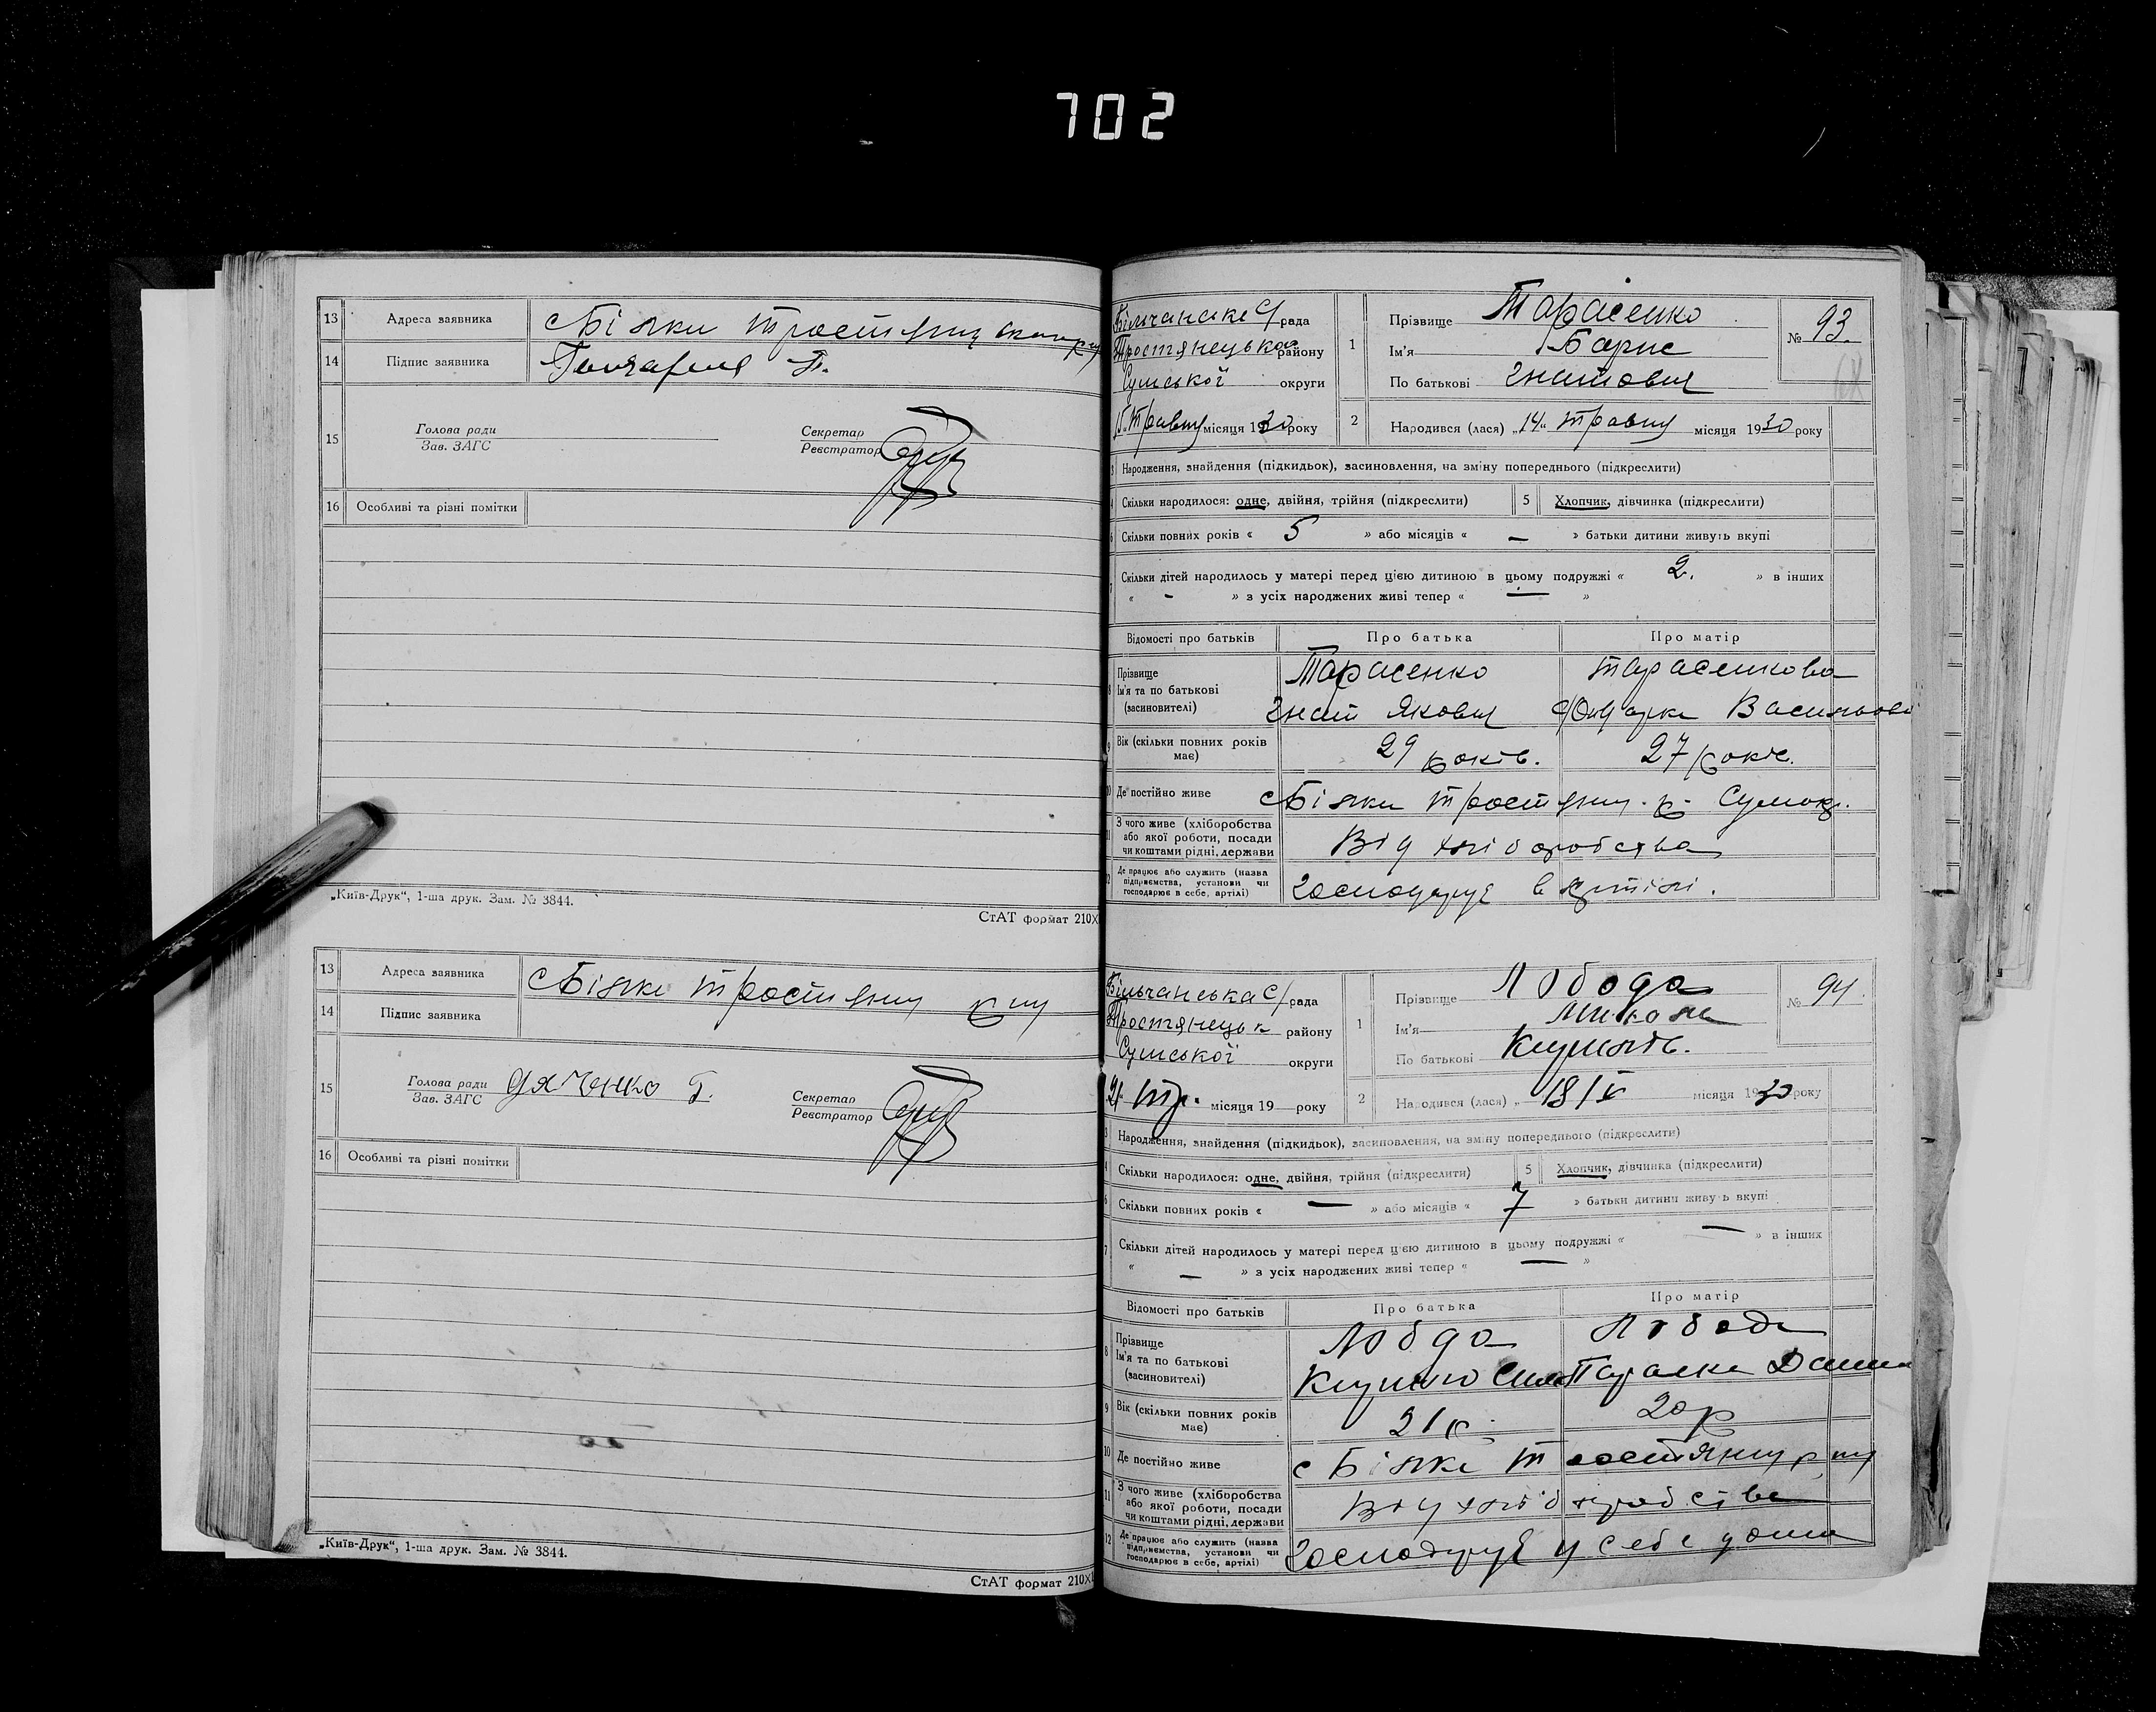 702
13 Адреса заявника с Білки тростянц
14 Підпис заявника
15 Голова ради
Зав. ЗАГС
Секретар
Реєстратор
16 Особливі та різні помітки
„Київ-Друк“, 1-ша друк. Зам. № 3844.
СтАТ формат 210Х
13 Адреса заявника с Білки тростянц
14 Підпис заявника
15 Голова ради Дяченко Г.
Зав. ЗАГС
Секретар
Реєстратор
16 Особливі та різні помітки
„Київ-Друк“, 1-ша друк. Зам. № 3844.
СтАТ формат 210Х
Більчанське С/рада
Тростянецького району
Сумської округи
15 Травня місяця 1930 року
1 Прізвище Тарасенко
Ім'я Борис
По батькові Гнатович
№ 93.
2 Народився (лася) „14“ травня місяця 1930 року
3 Народження, знайдення (підкидьок), засиновлення, на зміну попереднього (підкреслити)
4 Скільки народилося: одне, двійня, трійня (підкреслити) 5 Хлопчик, дівчинка (підкреслити)
6 Скільки повних років « 5 » або місяців « — » батьки дитини живуть вкупі
7 Скільки дітей народилось у матері перед цією дитиною в цьому подружжі « 2. » в інших
« - » з усіх народжених живі тепер « — »
Відомості про батьків Про батька Про матір
8 Прізвище Тарасенко Тарасенкова
Ім'я та по батькові
(засиновителі) Гнат Якович Васильовна
9 Вік (скільки повних років має) 29 років. 27 років.
10 Де постійно живе с Білки тростянц. р. Сум ок.
11 З чого живе (хліборобства
або якої роботи, посади
чи коштами рідні, держави Від хліборобства
12 Де працює або служить (назва
підприємства, установи чи
господарює в себе, артілі) Господарує в артілі.
Більчанська С/рада
Тростянецьк району
Сумської округи
21 тр. місяця 19 року
1 Прізвище Лобода
Ім'я Микола
По батькові
№ 94.
2 Народився (лася) „ 18/V місяця 1930 року
3 Народження, знайдення (підкидьок), засиновлення, на зміну попереднього (підкреслити)
4 Скільки народилося: одне, двійня, трійня (підкреслити) 5 Хлопчик, дівчинка (підкреслити)
6 Скільки повних років « — » або місяців « 7 » батьки дитини живуть вкупі
7 Скільки дітей народилось у матері перед цією дитиною в цьому подружжі « — » в інших
« — » з усіх народжених живі тепер « — »
Відомості про батьків Про батька Про матір
8 Прізвище Лобда Лобода
Ім'я та по батькові
(засиновителі) Параска
9 Вік (скільки повних років має) 21 р. 20 р
10 Де постійно живе с Білке Тростянец р ну
11 З чого живе (хліборобства
або якої роботи, посади
чи коштами рідні, держави Від хліборобства
12 Де працює або служить (назва
підприємства, установи чи
господарює в себе, артілі) Господарує у себе дома